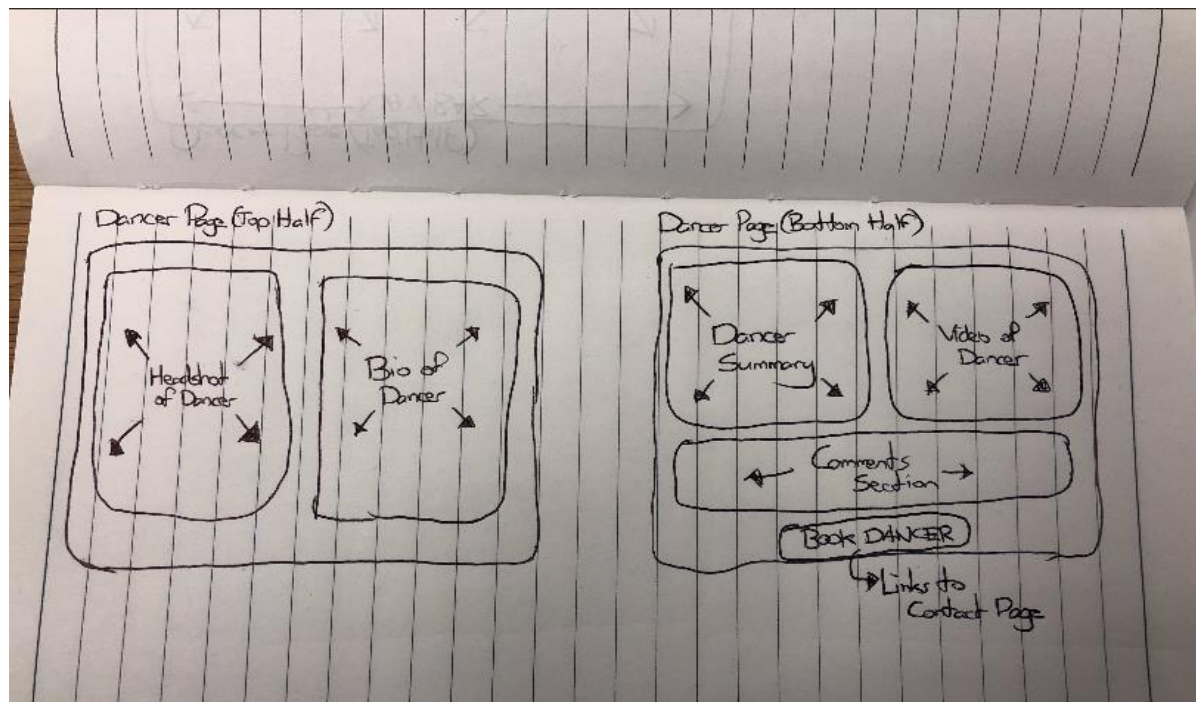 Dancer Page (Top Half)
Headshot
of Dancer
Bio of
Dancer
Dancer Page (Bottom Half)
Dancer
Summary
Video of
Dancer
Comments
Section
BOOK DANCER
Links to
Contact Page